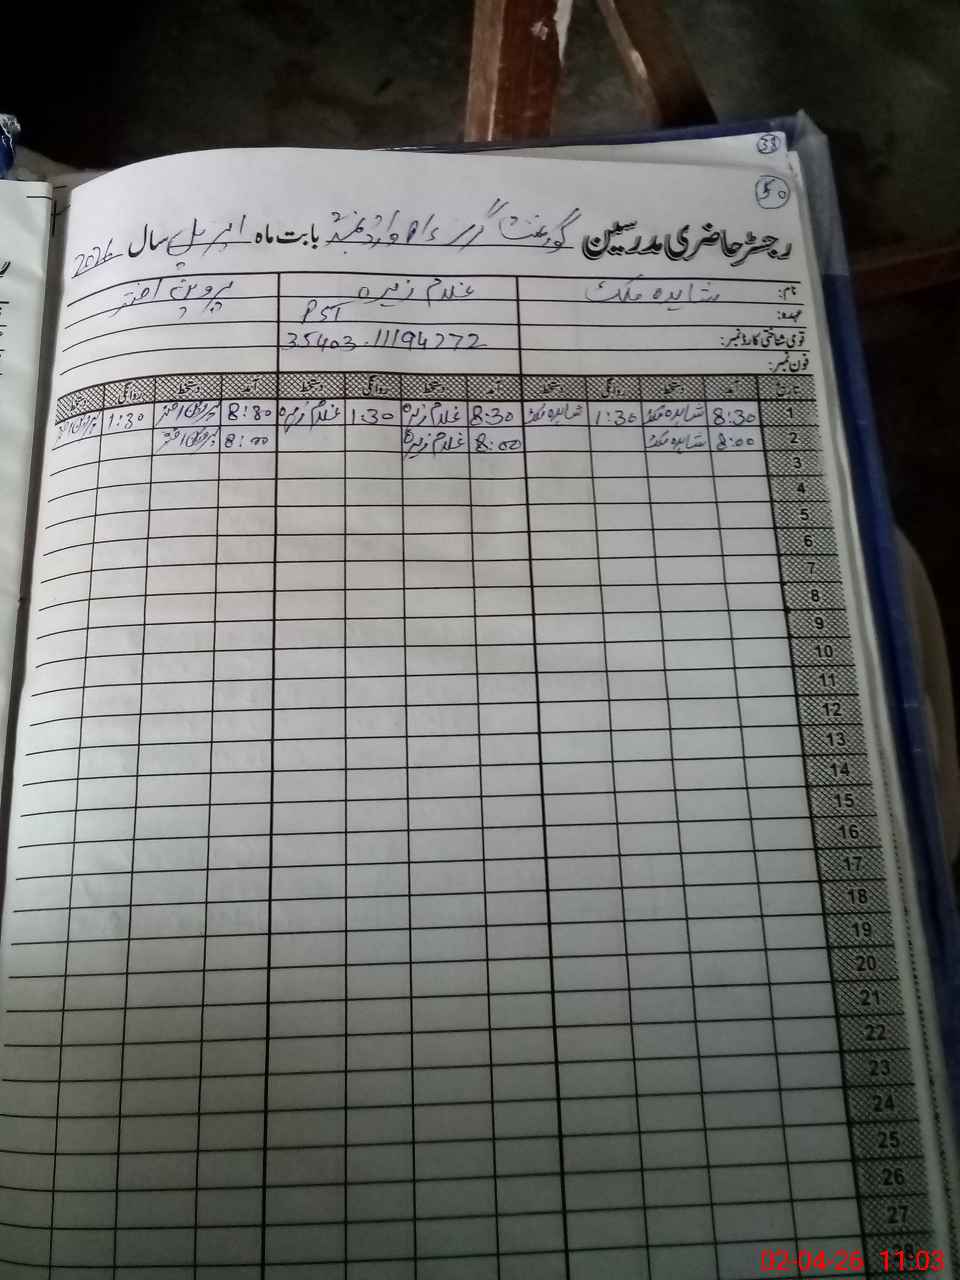 33
50
رجسٹر حاضری مدرسین گورنمنٹ گرلز بابت ماہ اپریل سال 2026
نام: شاہدہ ملک غلام زہرہ پروین اختر
عہدہ: PST
قومی شناختی کارڈ نمبر: 35403-11194772
فون نمبر:
تاریخ آمد دستخط روانگی دستخط آمد دستخط روانگی دستخط آمد دستخط روانگی دستخط
1 8:30 شاہدہ ملک 1:30 شاہدہ ملک 8:30 غلام زہرہ 1:30 غلام زہرہ 8:30 پروین اختر 1:30 پروین اختر
2 8:00 شاہدہ ملک 8:00 غلام زہرہ 8:00 پروین اختر
3
4
5
6
7
8
9
10
11
12
13
14
15
16
17
18
19
20
21
22
23
24
25
26
27
28
02-04-26 11:03